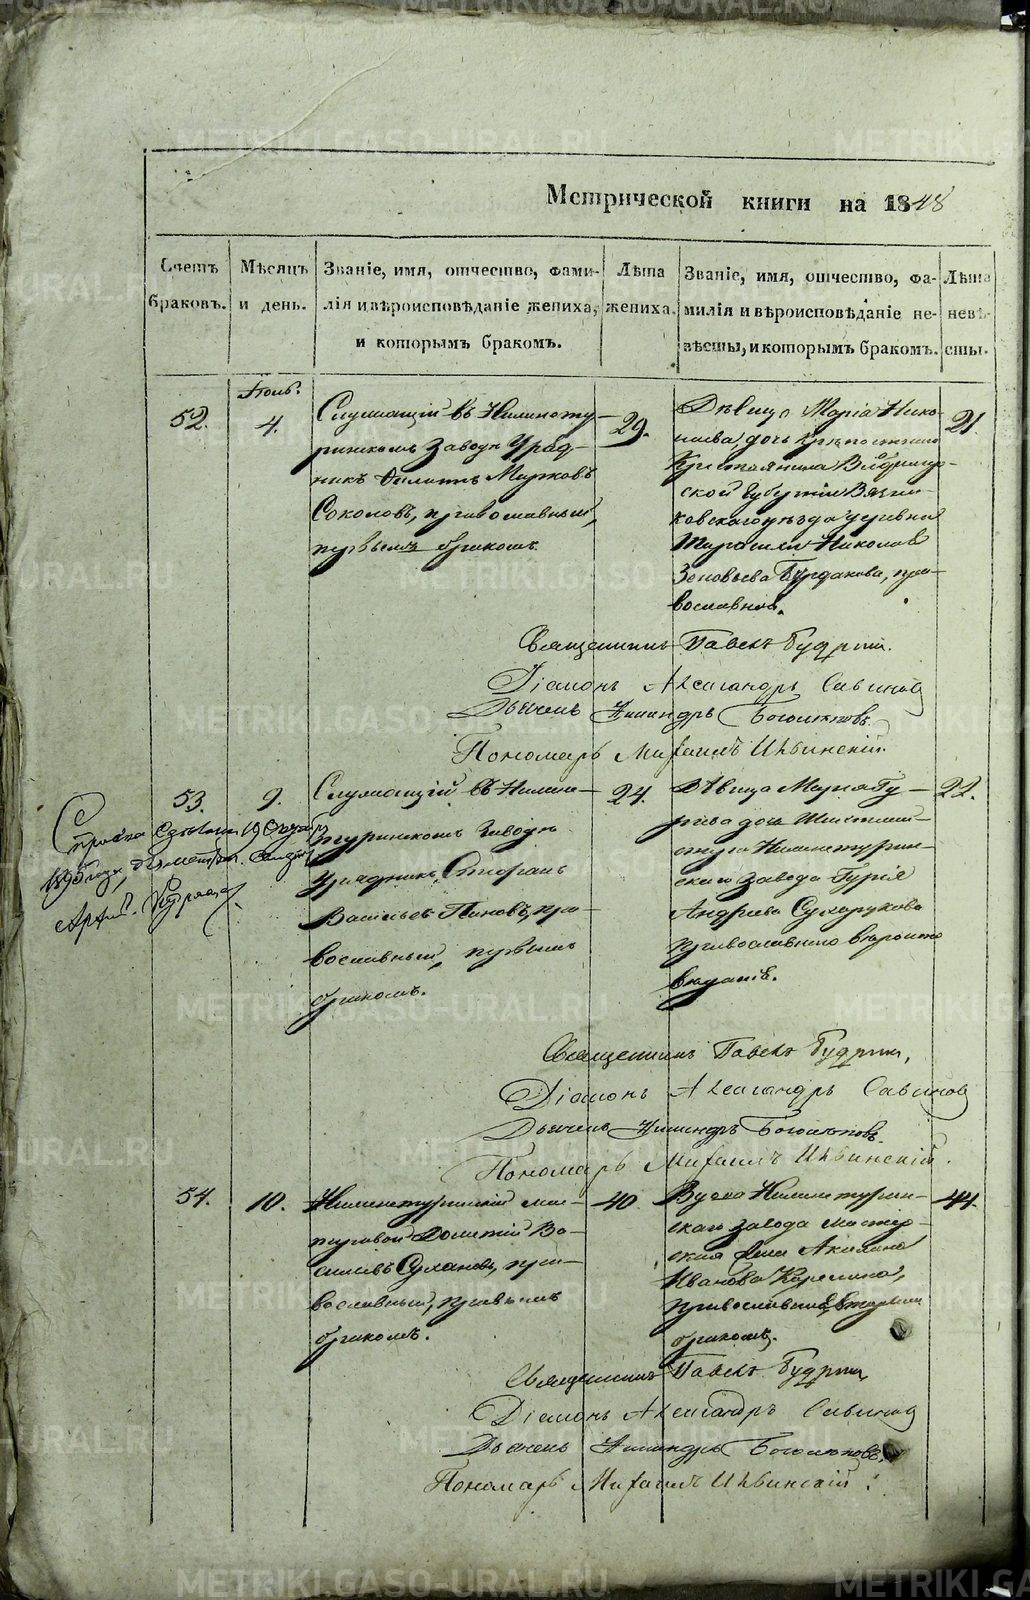 Метрической книги на 1848
Счетъ браковъ.
Мѣсяцъ и день.
Званіе, имя, отчество, фами-
лія и вѣроисповѣданіе жениха,
и которымъ бракомъ.
Лѣта жениха.
Званіе, имя, отчество, фа-
милія и вѣроисповѣданіе не-
вѣсты, и которымъ бракомъ.
Лѣта невѣ-
сты.
Іюль.
52.
4.
Служащій въ Нижнету-
ринскомъ заводѣ Уряд-
никъ Филиппъ Марковъ
Соколовъ, православный,
первымъ бракомъ.
29.
Дѣвица Марія Нико-
лаева, дочь Крѣпостнаго
Крестьянина Владимір-
ской Губерніи Вязни-
ковскаго уѣзда деревни
Николая
Зоновьева Бурдакова, пра-
вославная.
21.
Священникъ Павелъ Будринъ.
Діаконъ Александръ Савиновъ
Дьячекъ Никандръ Боголюбовъ
Пономарь Михаилъ Ильинскій.
53.
9.
Служащій въ Нижне-
туринскомъ Заводѣ
Урядникъ Стефанъ
Васильевъ Пановъ, пра-
вославный, первымъ
бракомъ.
24.
Дѣвица Марѳа Гу-
рьева дочь
Нижнетурин-
скаго завода Гурія
Андреева Сухарукова
православнаго вѣроиспо-
вѣданія.
22.
19 Октября
1895 года,
Священникъ Павелъ Будринъ,
Діаконъ Александръ Савиновъ
Дьячекъ Никандръ Боголюбовъ.
Пономарь Михаилъ Ильинскій.
54.
10.
Нижнетуринскій мас-
теровой Дометій Ва-
сильевъ Сухановъ, пра-
вославный, первымъ
бракомъ.
40.
Вдова Нижнетурин-
скаго завода мастер-
ская жена Акилина
Иванова Карелина,
православная, вторымъ
бракомъ.
44.
Священникъ Павелъ Будринъ
Діаконъ Александръ Савиновъ
Дьячекъ Никандръ Боголюбовъ.
Пономарь Михаилъ Ильинскій.
METRIKI.GASO-URAL.RU